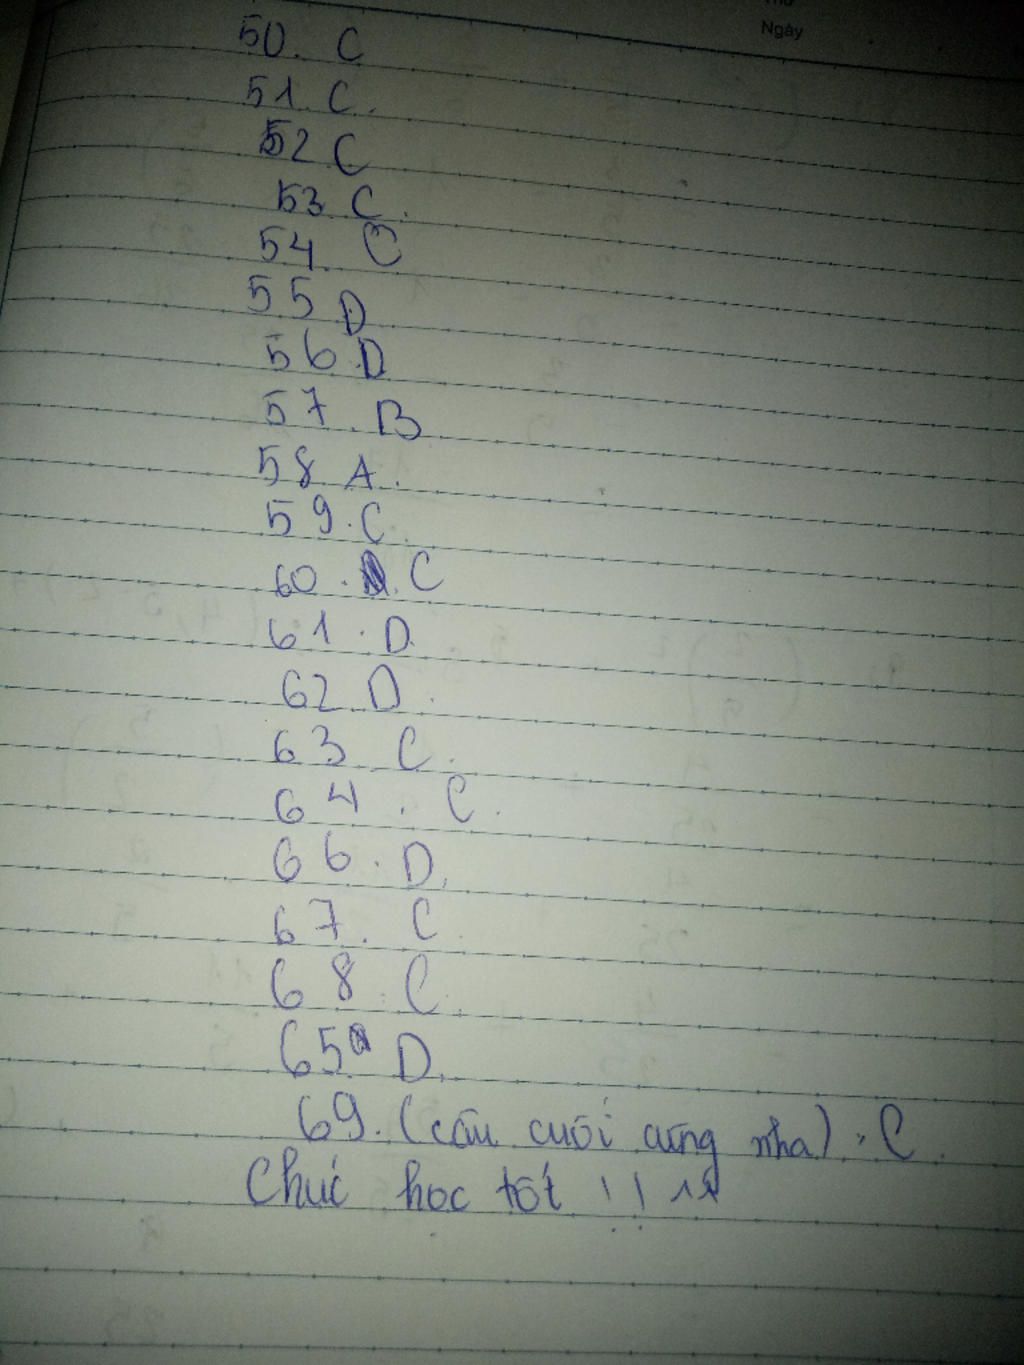 Thứ
Ngày
50. C
51. C.
52 C
53 C.
54. C
55 D
56 D
57. B
58 A.
59. C.
60. C
61. D.
62 D.
63 C.
64. C.
66. D.
67. C
68 C.
65. D.
69. (câu cuối cùng nha). C.
Chúc học tốt !! ^^